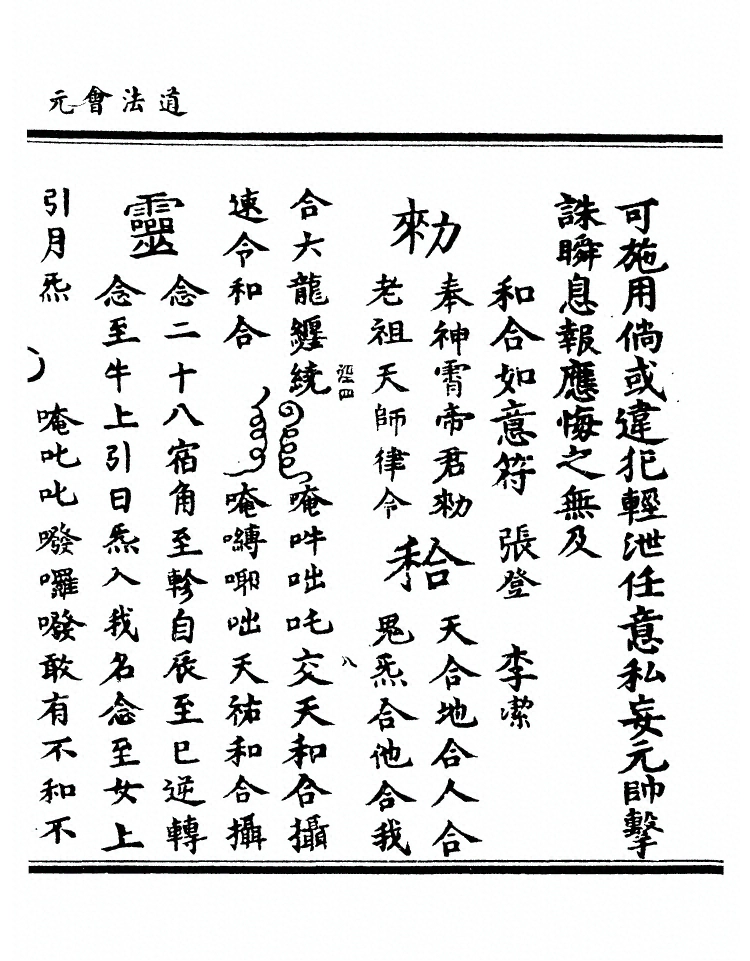 道法會元
可施用倘或違犯輕泄任意私妄元帥擊
誅瞬息報應悔之無及
和合如意符　張登　李潔
勑
奉神霄帝君勑
老祖天師律令
天合地合人合
鬼炁合他合我
涇四
八
合大龍纏繞　唵吽咄吒交天和合攝
速令和合　唵嚩唧咄天祐和合攝
靈
念二十八宿角至軫自辰至巳逆轉
念至牛上引日炁入我名念至女上
引月炁　唵叱叱㗶囉㗶敢有不和不